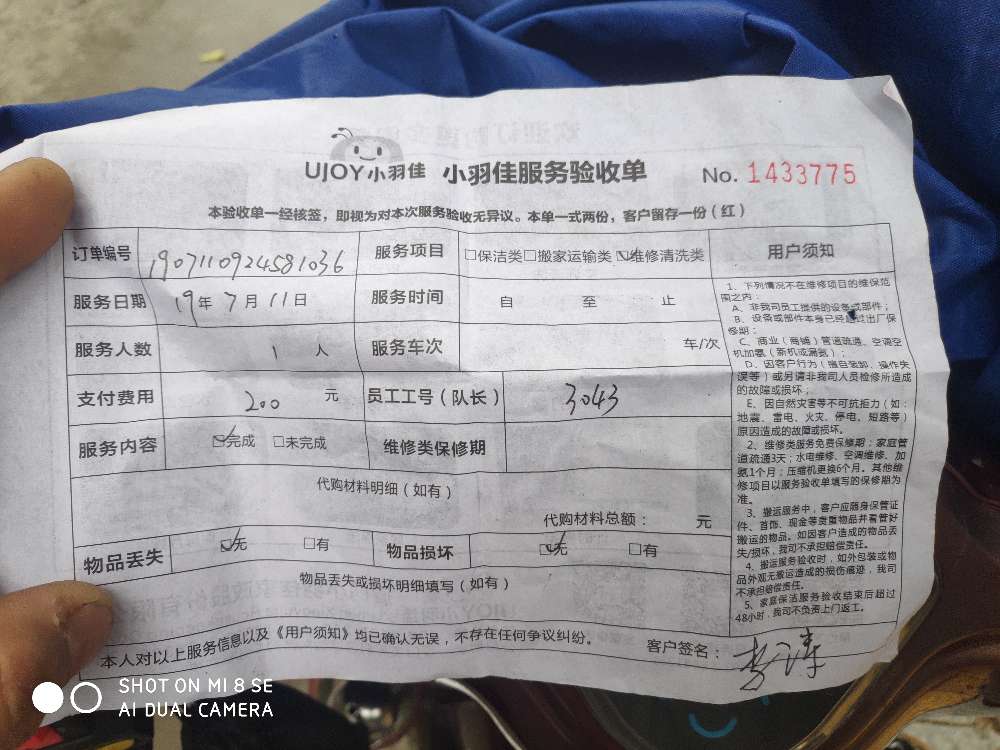 UJOY小羽佳 小羽佳服务验收单 No. 1433775
本验收单一经核签，即视为对本次服务验收无异议。本单一式两份，客户留存一份（红）
订单编号 1907110924581036 服务项目 □保洁类□搬家运输类☑维修清洗类
服务日期 19年7月11日 服务时间 自 至 止
服务人数 1 人 服务车次 车/次
支付费用 200 元 员工工号（队长） 3043
服务内容 ☑完成 □未完成 维修类保修期
代购材料明细（如有）
代购材料总额： 元
物品丢失 ☑无 □有 物品损坏 ☑无 □有
物品丢失或损坏明细填写（如有）
本人对以上服务信息以及《用户须知》均已确认无误，不存在任何争议纠纷。 客户签名：
用户须知
1、下列情况不在维修项目的维保范
围之内：
A、非我司员工提供的设备或部件；
B、设备或部件本身已经超过出厂保
修期；
C、商业（商铺）管道疏通、空调空
机加氨（新机或漏氨）；
D、因客户行为（擅自装卸、操作失
误等）或另请非我司人员检修所造成
的故障或损坏；
E、因自然灾害等不可抗拒力（如：
地震、雷电、火灾、停电、短路等）
原因造成的故障或损坏。
2、维修类服务免费保修期：家庭管
道疏通3天；水电维修、空调维修、加
氨1个月；压缩机更换6个月。其他维
修项目以服务验收单填写的保修期为
准。
3、搬运服务中，客户应随身保管证
件、首饰、现金等贵重物品并看管好
搬运的物品。如因客户造成的物品丢
失/损坏，我司不承担赔偿责任。
4、搬运服务验收时，如外包装或物
品外观无搬运造成的损伤痕迹，我司
不承担赔偿责任。
5、家庭保洁服务验收结束后超过
48小时，我司不负责上门返工。
SHOT ON MI 8 SE
AI DUAL CAMERA